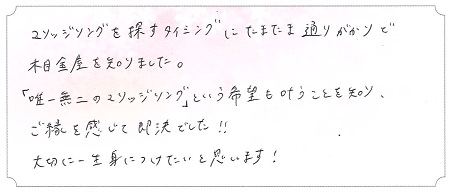 マリッジリングを探すタイミングにたまたま通りがかりで
杢目金屋を知りました。
「唯一無二のマリッジリング」という希望も叶うことを知り、
ご縁を感じて即決でした!!
大切に一生身につけたいと思います!